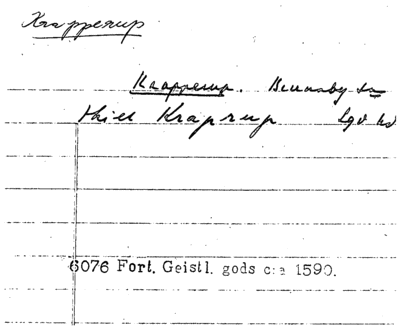 Krapperup
Krapperup. Brunnby sn
Thill Kraprup Lgd hd
6076 Fort. Geistl. gods c:a 1590.